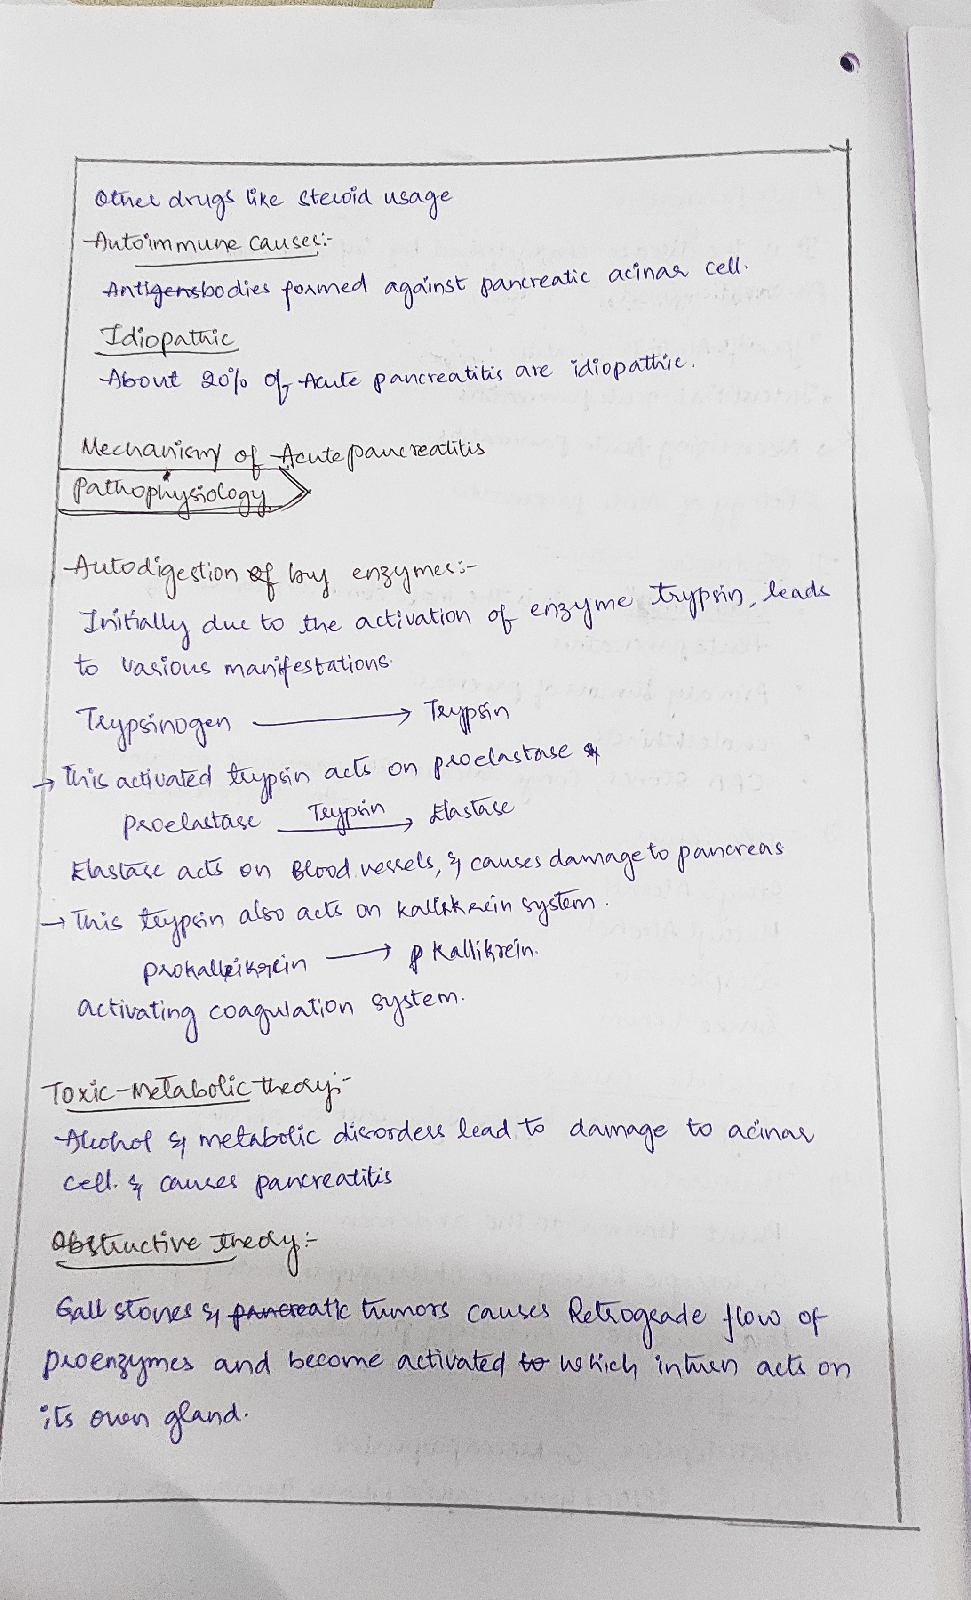 Other drugs like steroid usage
Autoimmune causes:-
Antigensbodies formed against pancreatic acinar cell.
Idiopathic
About 20% of Acute pancreatitis are idiopathic.
Mechanism of Acute pancreatitis
Pathophysiology
Autodigestion of by enzymes:-
Initially due to the activation of enzyme trypsin, leads
to various manifestations.
Trypsinogen ⟶ Trypsin
→ This activated trypsin acts on proelastase &
Proelastase Trypsin ⟶ Elastase
Elastase acts on Blood vessels, & causes damage to pancreas
→ This trypsin also acts on kallikrein system.
Prokallikrein ⟶ Kallikrein.
activating coagulation system.
Toxic-Metabolic theory:-
Alcohol & metabolic disorders lead to damage to acinar
cell. & causes pancreatitis
Obstructive theory:-
Gall stones & pancreatic tumors causes Retrograde flow of
proenzymes and become activated to which inturn acts on
its own gland.